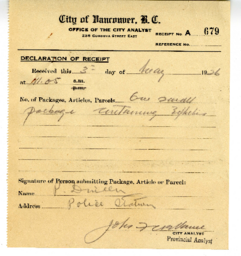 City of Vancouver, B.C.
OFFICE OF THE CITY ANALYST
CORDOVA STREET EAST
RECEIPT No. A 679
REFERENCE No.
DECLARATION OF RECEIPT
Received this 3rd day of May 1926
at a.m.
p.m.
No. of Packages, Articles, Parcels One small
package containing
Signature of Person submitting Package, Article or Parcel:
Name
Address Police Station
CITY ANALYST
Provincial Analyst